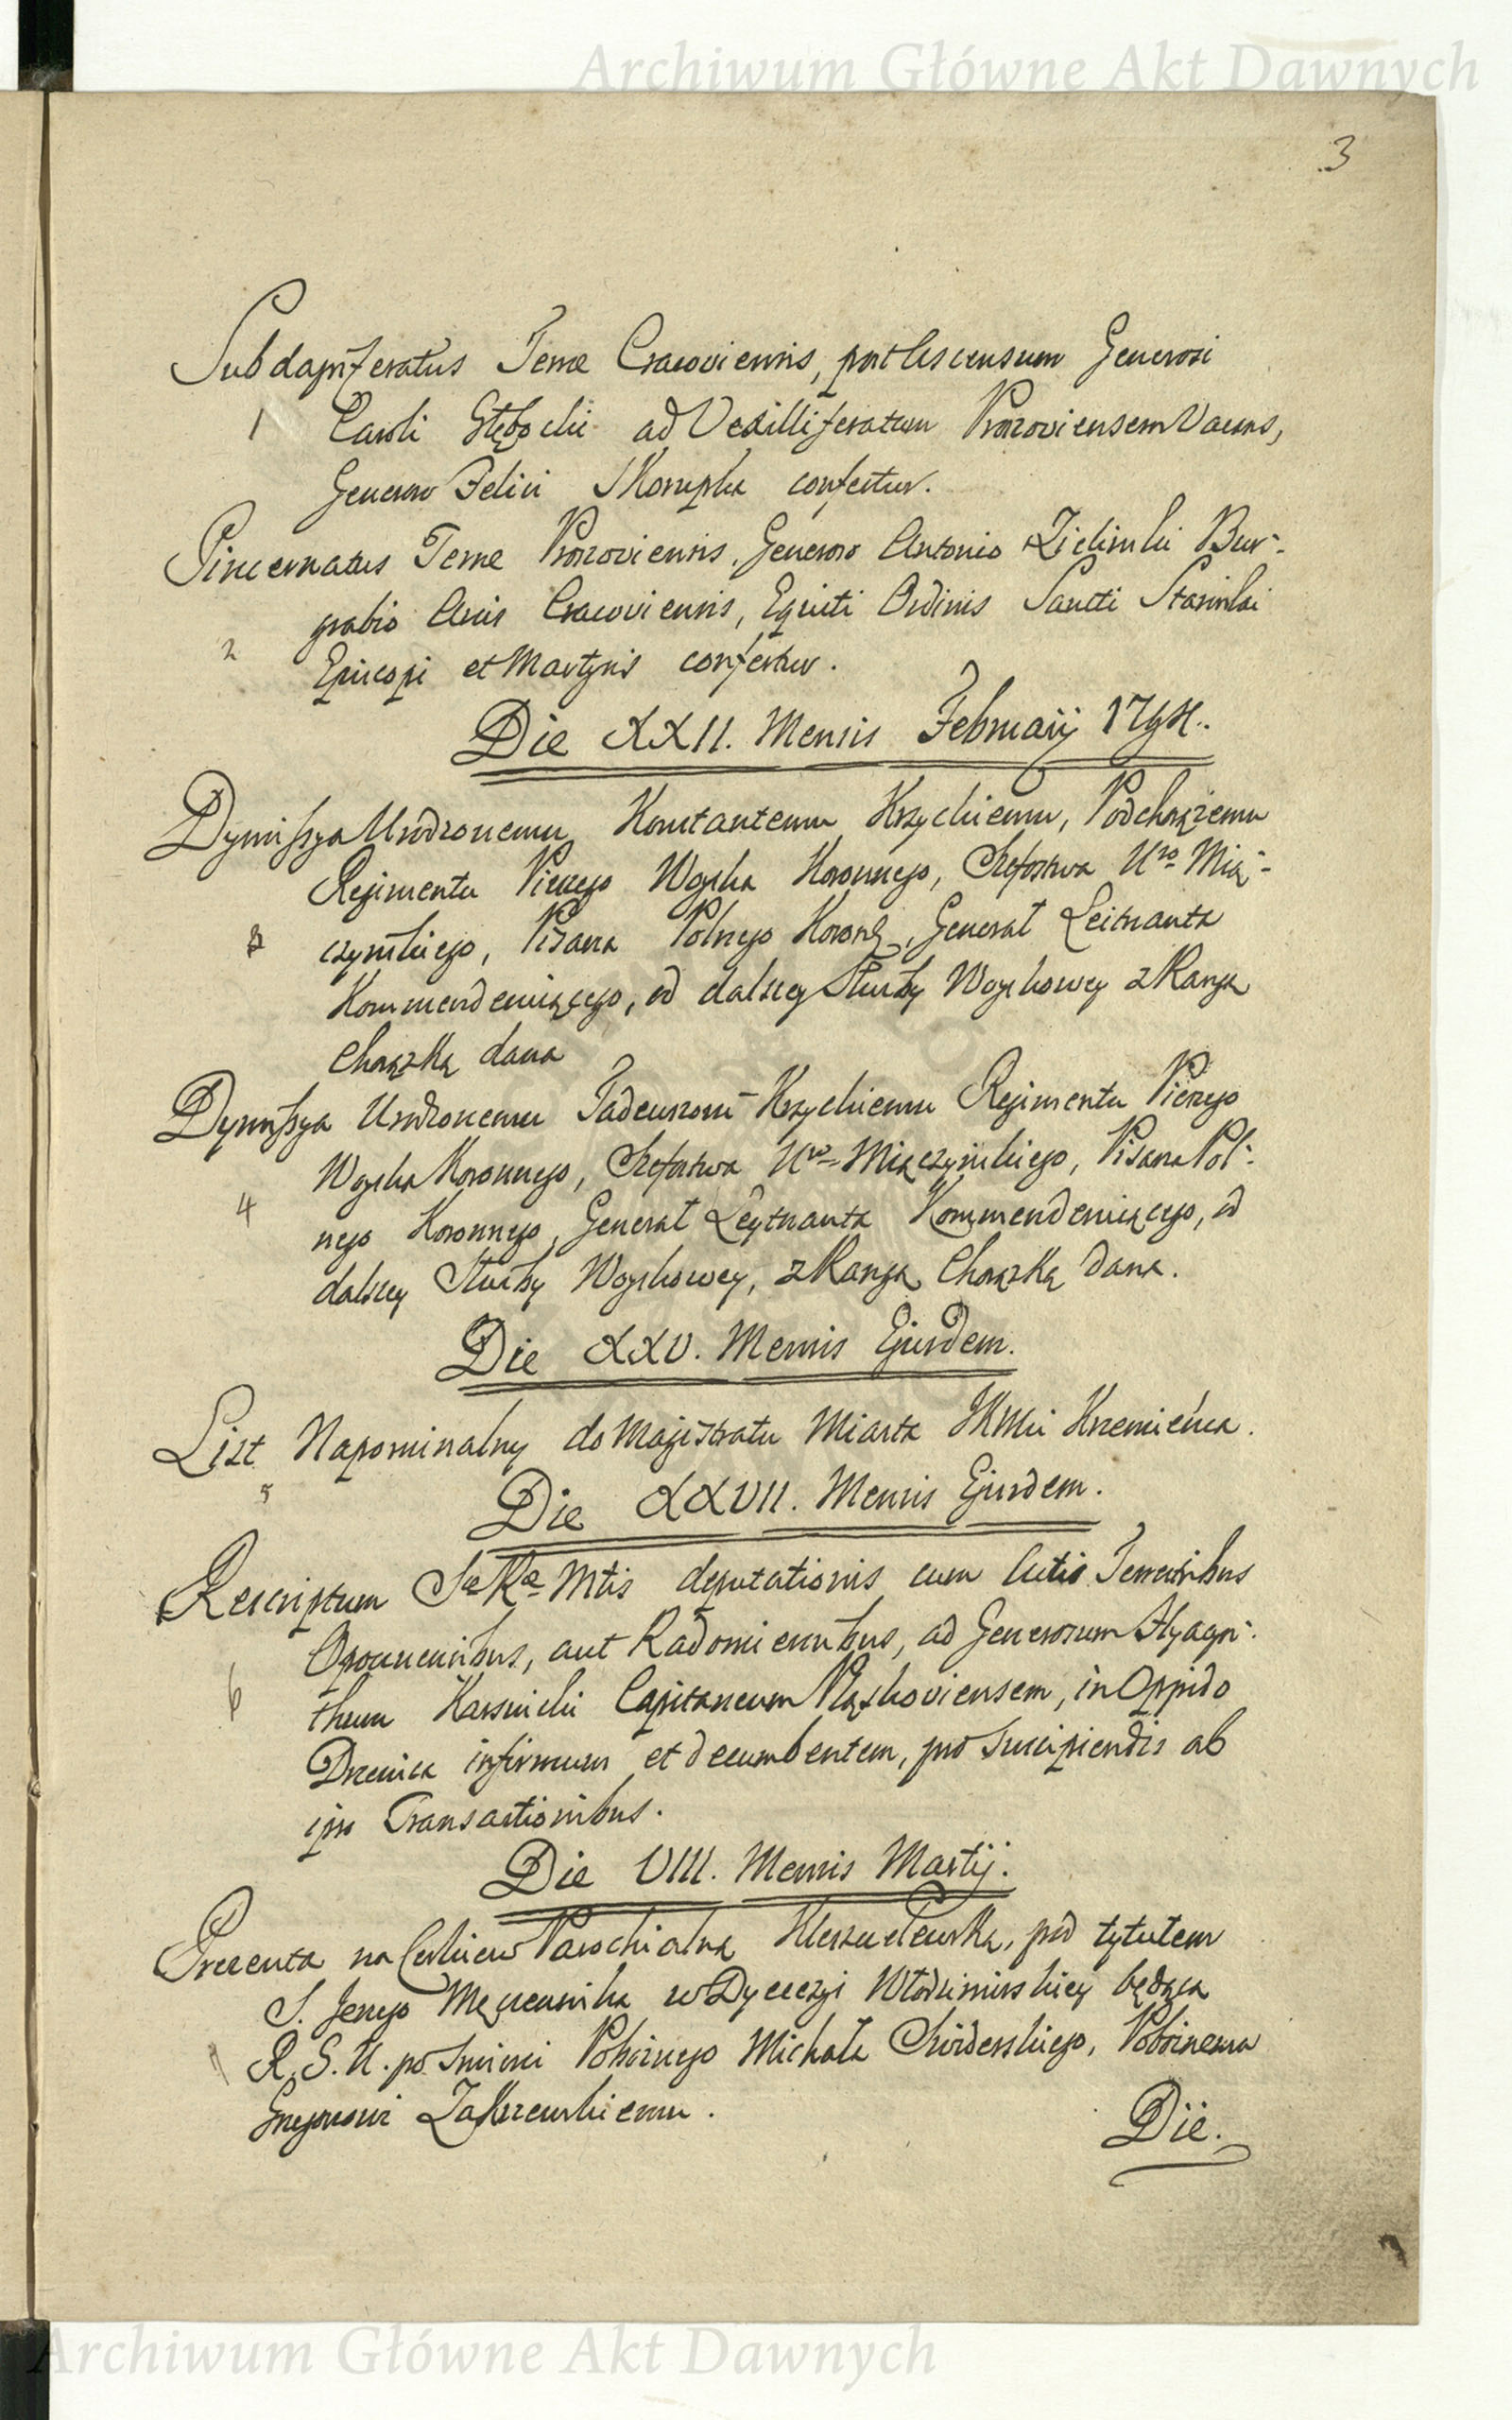 Archiwum Główne Akt Dawnych
3
Subdapiferatus Terræ Cracoviensis, post Ascensum Generosi
1 Caroli Głębocki ad Vexilliferatum Proszoviensem Vacans,
Generoso Felici Skorupka confertur.
Pincernatus Terræ Proszoviensis, Generoso Antonio Zielinski Bur-
grabio Arcis Cracoviensis, Equiti Ordinis Sancti Stanislai
2 Episcopi et Martyris confertur.
Die XXII. Mensis Februarij 1794.
Dymissya Urodzonemu Konstantemu Krzyckiemu, Podchorążemu
Regimentu Pieszego Woyska Koronnego, Szefostwa Uro Mią-
3 czyńskiego, Pisarza Polnego Koronn, Generał Leitnanta
Kommenderuiącego, od dalszey Służby Woyskowey z Rangą
Chorążką dana
Dymissya Urodzonemu Tadeuszowi Krzyckiemu Regimentu Pieszego
Woyska Koronnego, Szefostwa Uro Miączyńskiego, Pisarza Pol-
4 nego Koronnego, Generał Leytnanta Kommenderuiącego, od
dalszey Służby Woyskowey, z Rangą Chorążką dana.
Die XXV. Mensis Ejusdem.
List Napominalny do Magistratu Miasta JKMci Krzemieńca.
5
Die XXVII. Mensis Ejusdem.
Rescriptum Sæ Ræ Mtis deputationis cum Actis Terrestribus
Opocznensibus, aut Radomiensibus, ad Generosum Hyacyn-
6 thum Karsnicki Capitaneum Ploskoviensem, in Oppido
Drzewica infirmum et decumbentem, pro suscipiendis ab
ipso Transactionibus.
Die VIII. Mensis Martij.
Prezenta na Cerkiew Parochialną Kleszczelewską, pod tytułem
S. Jerzego Męczennika w Dyecezyi Włodzimirskiey będącą
R. G. U. po Smierci Pobożnego Michała Świderskiego, Pobożnemu
Grzegorzowi Zakrzewskiemu.
Die.
Archiwum Główne Akt Dawnych